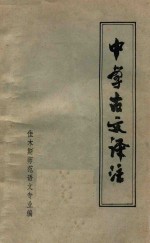 中学古文译注
佳木斯师范语文专业编